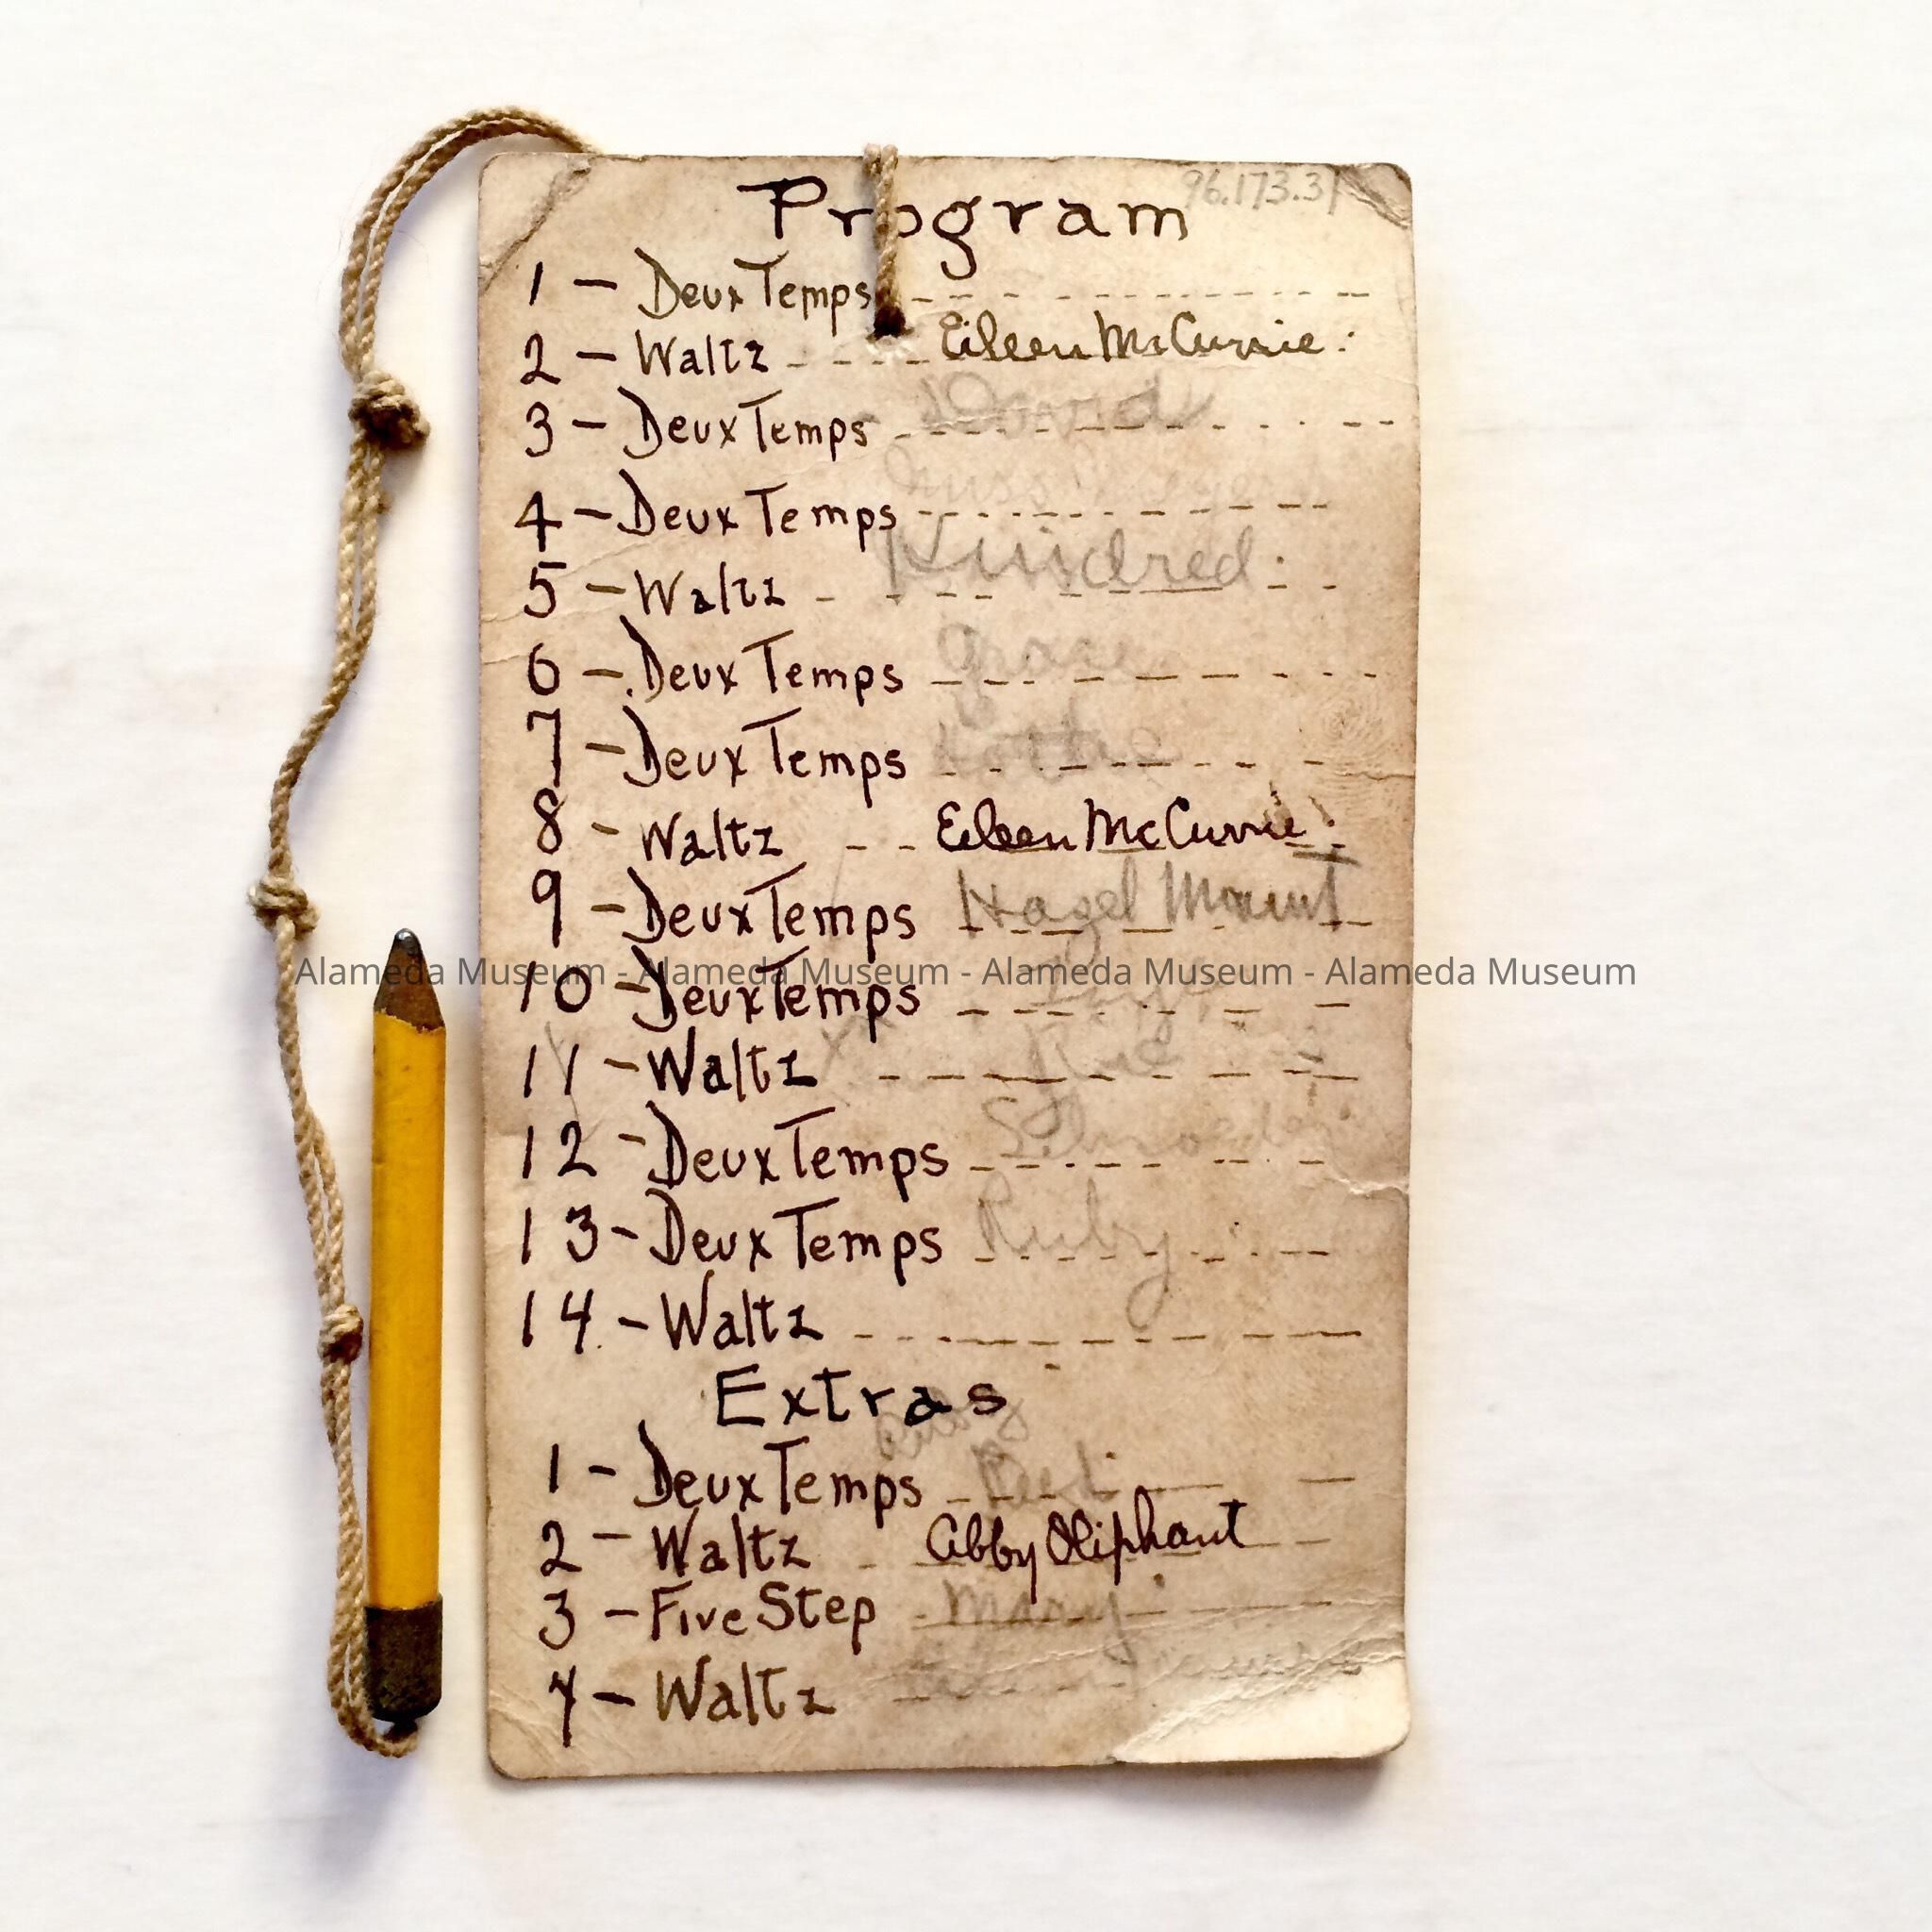 96.173.31
Program
1 - Deux Temps
2 - Waltz Eileen McCurrie:
3 - Deux Temps
4 - Deux Temps
5 - Waltz Kindred
6 - Deux Temps Grace
7 - Deux Temps
8 - Waltz Eileen McCurrie:
9 - Deux Temps Hazel
10 - Deux Temps
11 - Waltz
12 - Deux Temps Schroeder
13 - Deux Temps Ruby
14 - Waltz
Extras
1 - Deux Temps
2 - Waltz Abby Oliphant
3 - Five Step Mary
4 - Waltz
Alameda Museum - Alameda Museum - Alameda Museum - Alameda Museum